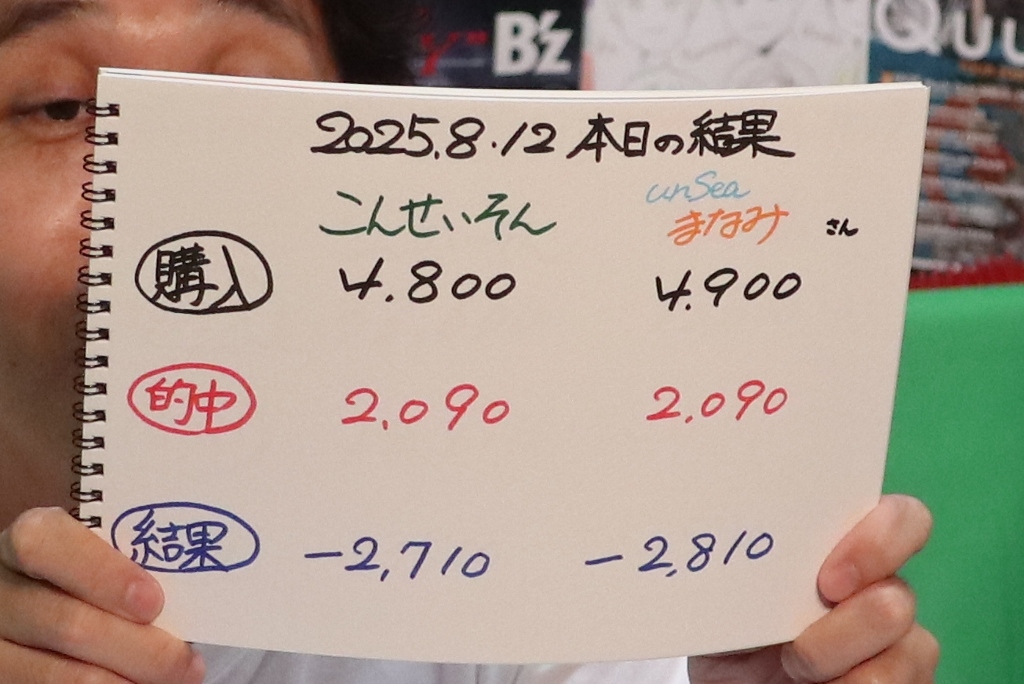 B'z
QUU
2025.8.12 本日の結果
こんせいそん
unSea
まなみ さん
購入 4.800 4.900
的中 2,090 2,090
結果 -2,710 -2,810